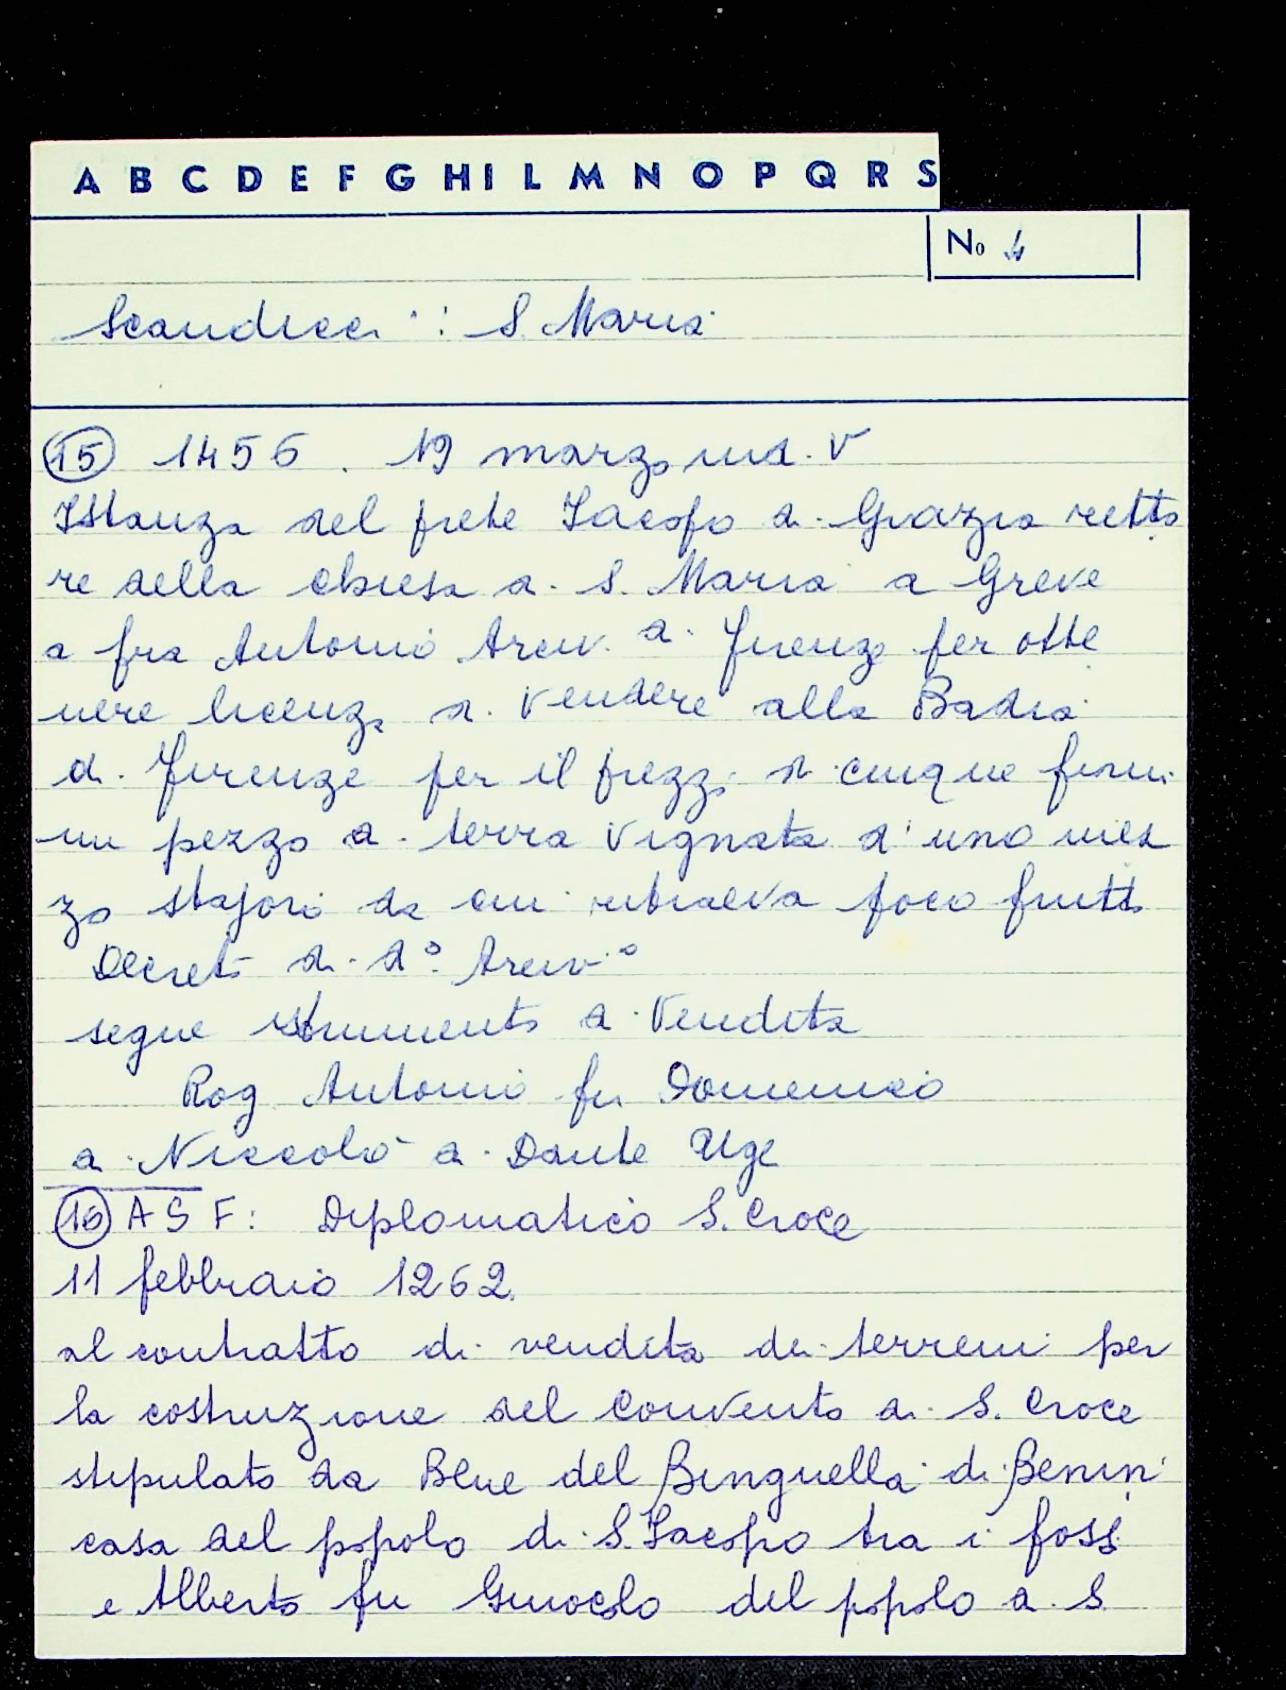 A B C D E F G H I L M N O P Q R S
No 4
Scandicci : S. Maria
15 1456. 19 marzo ind. V
Istanza del prete Iacopo di Grazia retto
re della chiesa di S. Maria a Greve
a fra Antonio Arciv. di Firenze per otte
nere licenza di vendere alla Badia
di Firenze per il prezzo di cinque fiorini
un pezzo di terra vignata d'uno mez
zo stajoro da cui ritraeva poco frutto
Decreto di do. Arcivo
segue istrumento di vendita
Rog Antonio fu Domenico
di Niccolò di Dante
16 A S F: Diplomatico S. Croce
11 febbraio 1262.
al contratto di vendita dei terreni per
la costruzione del Convento di S. Croce
stipulato da del Binguella di Benin
casa del popolo di S. Iacopo tra i fossi
e Alberto fu del popolo di S.